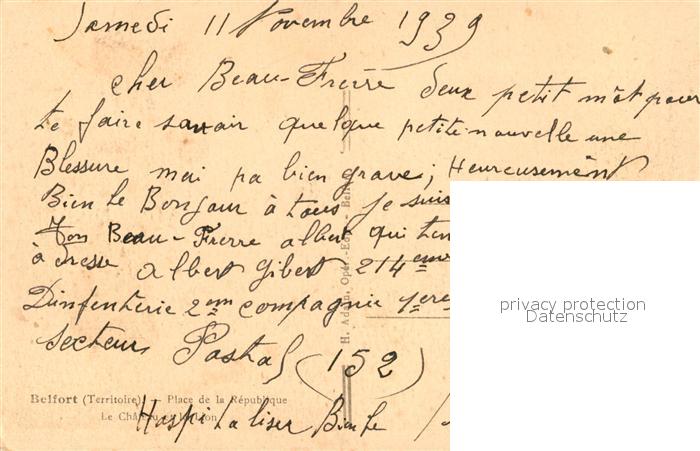 Samedi 11 Novembre 1939
cher Beau-Frere deux petit môt pour
te faire savair quelque petite nouvelle une
Blessure mai pa bien grave; Heureusement
Bien le Bonjour à tous je suis
Ton Beau-Frerre albert qui ten
à dresse albert gibert 214 eme
Dinfenterie 2 em compagnie 1ere
secteur Postal (152)
Hospitaliser Bien te
Belfort (Territoire) — Place de la République
Le Château et le Lion
privacy protection
Datenschutz